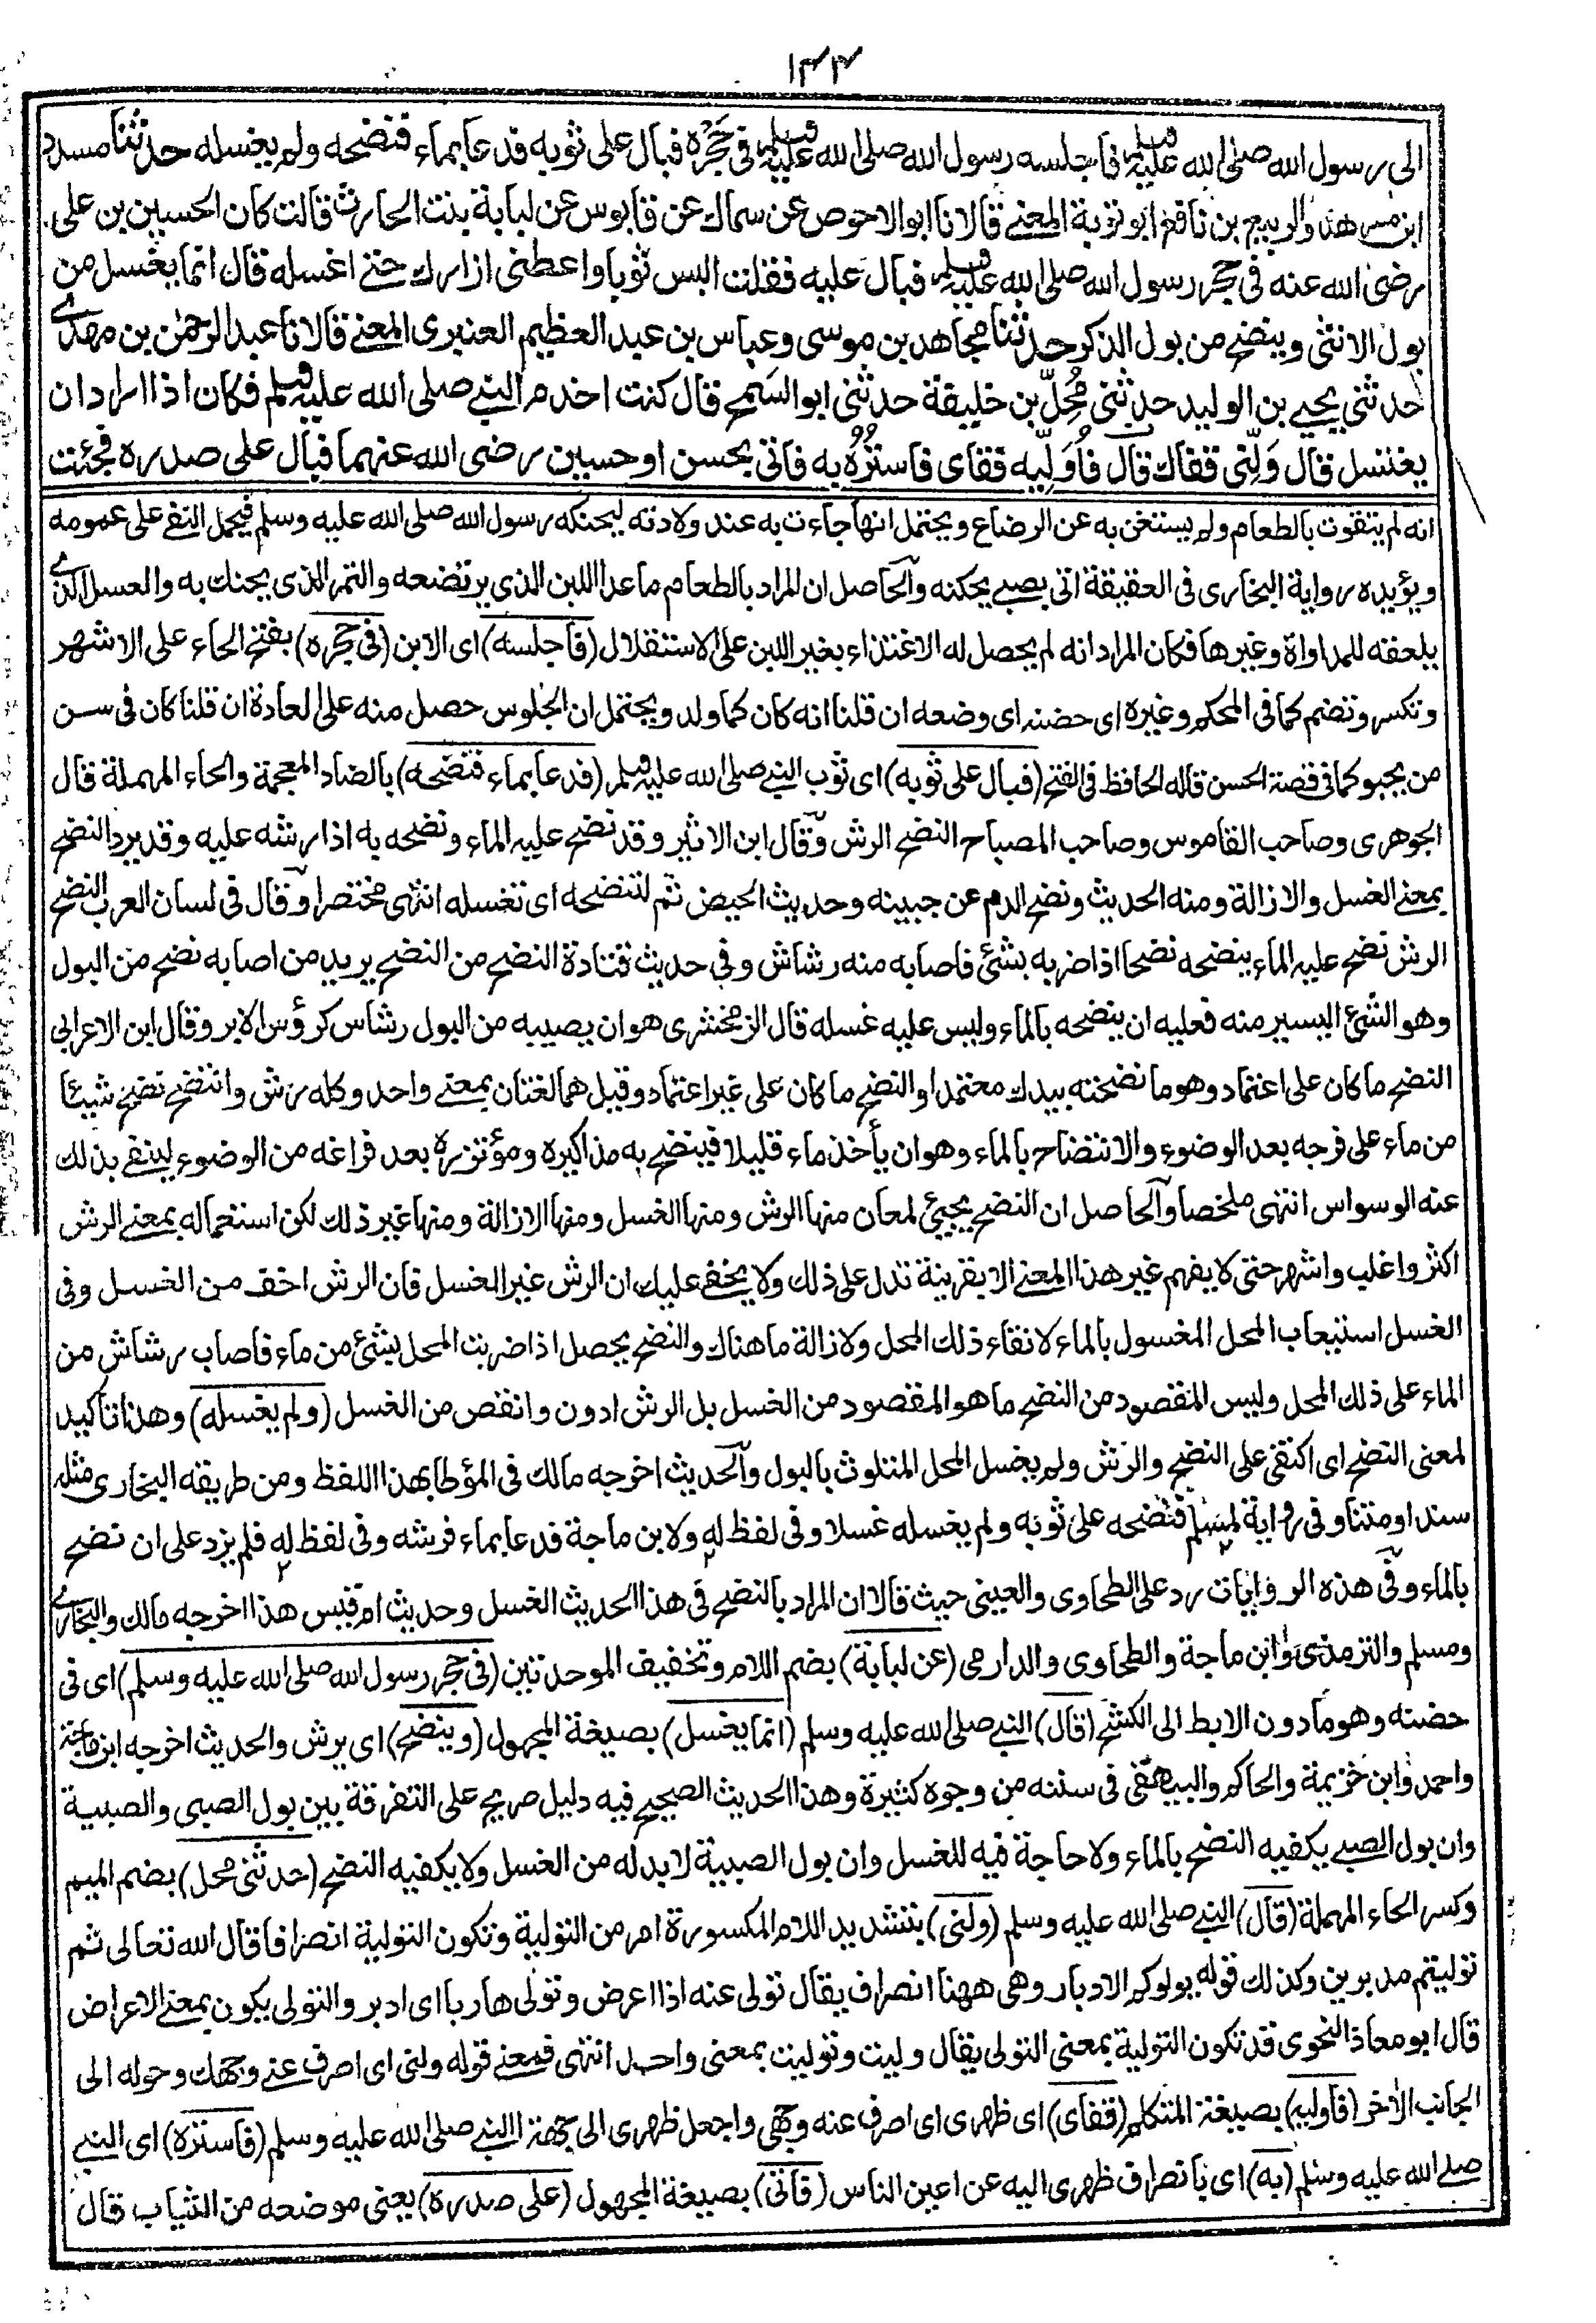 ١٤٤
الى رسول الله صلى الله عليه وسلم فاجلسه رسول الله صلى الله عليه وسلم فى حجره فبال على ثوبه فدعا بماء فنضحه ولم يغسله حدثنا مسدد
ابن مسرهد والربيع بن نافع ابو توبة المعنى قالا نا ابو الاحوص عن سماك عن قابوس عن لبابة بنت الحارث قالت كان الحسين بن على
رضى الله عنه فى حجر رسول الله صلى الله عليه وسلم فبال عليه فقلت البس ثوبا واعطنى ازارك حتى اغسله قال انما يغسل من
بول الانثى وينضح من بول الذكر حدثنا مجاهد بن موسى وعباس بن عبد العظيم العنبرى المعنى قالا نا عبد الرحمن بن مهدى
حدثنى يحيى بن الوليد حدثنى مُحِلّ بن خليفة حدثنى ابو السمح قال كنت اخدم النبى صلى الله عليه وسلم فكان اذا اراد ان
يغتسل قال وَلِّنى قفاك قال فاُوَلِّيه قفاى فاستُرُه به فاتى بحسن او حسين رضى الله عنهما فبال على صدره فجئت
انه لم يتقوت بالطعام ولم يستغن به عن الرضاع ويحتمل انها جاءت به عند ولادته ليحنكه رسول الله صلى الله عليه وسلم فيحمل النفى على عمومه
ويؤيده رواية البخارى فى العقيقة اتى بصبى يحنكه والحاصل ان المراد بالطعام ما عدا اللبن الذى يرتضعه والتمر الذى يحنك به والعسل الذى
يلعقه للمداواة وغيرها فكان المراد انه لم يحصل له الاغتذاء بغير اللبن على الاستقلال (فاجلسه) اى الابن (فى حجره) بفتح الحاء على الاشهر
وتكسر وتضم كما فى المحكم وغيره اى حضنه اى وضعه ان قلنا انه كان كما ولد ويحتمل ان الجلوس حصل منه على العادة ان قلنا كان فى سن
من يحبو كما فى قصة الحسن قاله الحافظ فى الفتح (فبال على ثوبه) اى ثوب النبى صلى الله عليه وسلم (فدعا بماء فنضحه) بالضاد المعجمة والحاء المهملة قال
الجوهرى وصاحب القاموس وصاحب المصباح النضح الرش وقال ابن الاثير وقد نضح عليه الماء ونضحه به اذا رشه عليه وقد يرد النضح
بمعنى الغسل والازالة ومنه الحديث ونضح الدم عن جبينه وحديث الحيض ثم لتنضحه اى تغسله انتهى مختصرا وقال فى لسان العرب النضح
الرش نضح عليه الماء ينضحه نضحا اذا ضربه بشئ فاصابه منه رشاش وفى حديث قتادة النضح من النضح يريد من اصابه نضح من البول
وهو الشئ اليسير منه فعليه ان ينضحه بالماء وليس عليه غسله قال الزمخشرى هو ان يصيبه من البول رشاش كرؤس الابر وقال ابن الاعرابى
النضح ما كان على اعتماد وهو ما نضحته بيدك معتمدا والنضح ما كان على غير اعتماد وقيل هما لغتان بمعنى واحد وكله رش وانتضح نضح شيئا
من ماء على فرجه بعد الوضوء والانتضاح بالماء وهو ان يأخذ ماء قليلا فينضح به مذاكيره ومؤتزره بعد فراغه من الوضوء لينفى بذلك
عنه الوسواس انتهى ملخصا والحاصل ان النضح يجيئ لمعان منها الرش ومنها الغسل ومنها الازالة ومنها غير ذلك لكن استعماله بمعنى الرش
اكثر واغلب واشهر حتى لا يفهم غير هذا المعنى الا بقرينة تدل على ذلك ولا يخفى عليك ان الرش غير الغسل فان الرش اخف من الغسل وفى
الغسل استيعاب المحل المغسول بالماء لانقاء ذلك المحل ولازالة ما هناك والنضح يحصل اذا ضربت المحل بشئ من ماء فاصاب رشاش من
الماء على ذلك المحل وليس المقصود من النضح ما هو المقصود من الغسل بل الرش ادون وانقص من الغسل (ولم يغسله) وهذا تأكيد
لمعنى النضح اى اكتفى على النضح والرش ولم يغسل المحل المتلوث بالبول والحديث اخرجه مالك فى المؤطا بهذا اللفظ ومن طريقه البخارى مثله
سندا ومتنا وفى رواية لمسلم فنضحه على ثوبه ولم يغسله غسلا وفى لفظ له ولابن ماجة فدعا بماء فرشه وفى لفظ له فلم يزد على ان نضح
بالماء وفى هذه الروايات رد على الطحاوى والعينى حيث قالا ان المراد بالنضح فى هذا الحديث الغسل وحديث ام قيس هذا اخرجه مالك والبخارى
ومسلم والترمذى وابن ماجة والطحاوى والدارمى (عن لبابة) بضم اللام وتخفيف الموحدتين (فى حجر رسول الله صلى الله عليه وسلم) اى فى
حضنه وهو ما دون الابط الى الكشح (قال) النبى صلى الله عليه وسلم (انما يغسل) بصيغة المجهول (وينضح) اى يرش والحديث اخرجه ابن ماجة
واحمد وابن خزيمة والحاكم والبيهقى فى سننه من وجوه كثيرة وهذا الحديث الصحيح فيه دليل صريح على التفرقة بين بول الصبى والصبية
وان بول الصبى يكفيه النضح بالماء ولا حاجة فيه للغسل وان بول الصبية لا بد له من الغسل ولا يكفيه النضح (حدثنى محل) بضم الميم
وكسر الحاء المهملة (قال) النبى صلى الله عليه وسلم (ولنى) بتشديد اللام المكسورة امر من التولية وتكون التولية انصرافا قال الله تعالى ثم
توليتم مدبرين وكذلك قوله يولوكم الادبار وهى ههنا انصراف يقال تولى عنه اذا اعرض وتولى هاربا اى ادبر والتولى يكون بمعنى الاعراض
قال ابو معاذ النحوى قد تكون التولية بمعنى التولى يقال وليت وتوليت بمعنى واحد انتهى فمعنى قوله ولنى اى اصرف عنى وجهك وحوله الى
الجانب الآخر (فاوليه) بصيغة المتكلم (قفاى) اى ظهرى اى اصرف عنه وجهى واجعل ظهرى الى جهة النبى صلى الله عليه وسلم (فاستره) اى النبى
صلى الله عليه وسلم (به) اى بانصراف ظهرى اليه عن اعين الناس (فاتى) بصيغة المجهول (على صدره) يعنى موضعه من الثياب قال